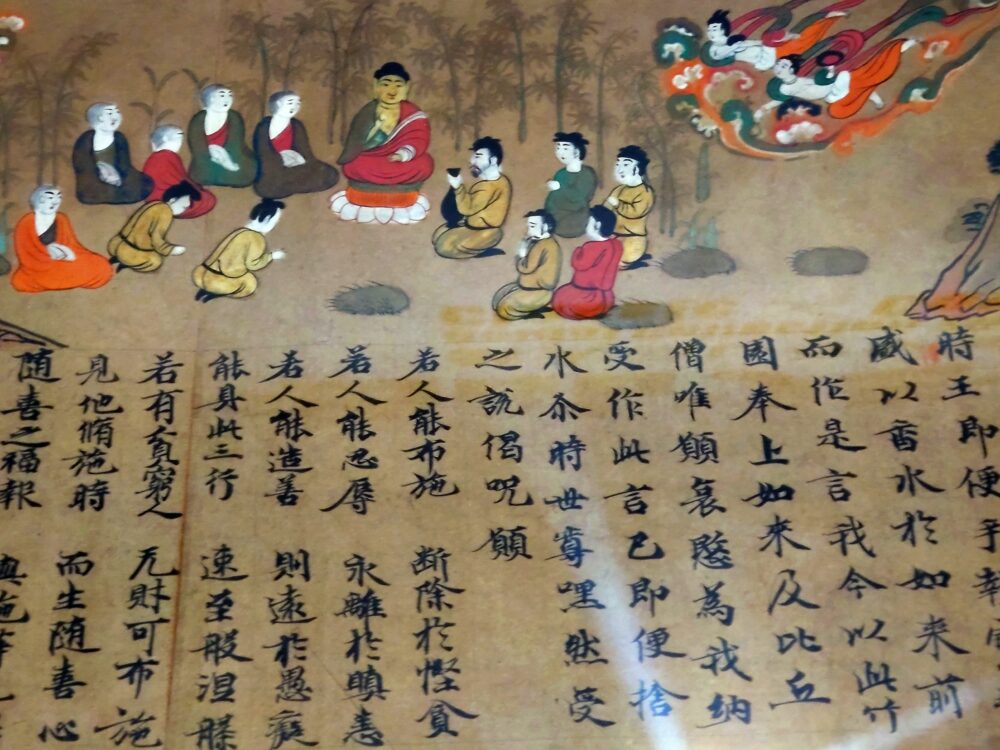 時王即便手執
盛以香水於如来前
而作是言我今以此竹
園奉上如来及比丘
僧唯願哀愍為我納
受作此言已即便捨
水尒時世尊嘿然受
之説偈呪願
若人能布施　断除於慳貪
若人能忍辱　永離於瞋恚
若人能造善　則遠於愚癡
能具此三行　速至般涅槃
若有貧窮人　无財可布施
見他脩施時　而生随善心
随善之福報　與施等